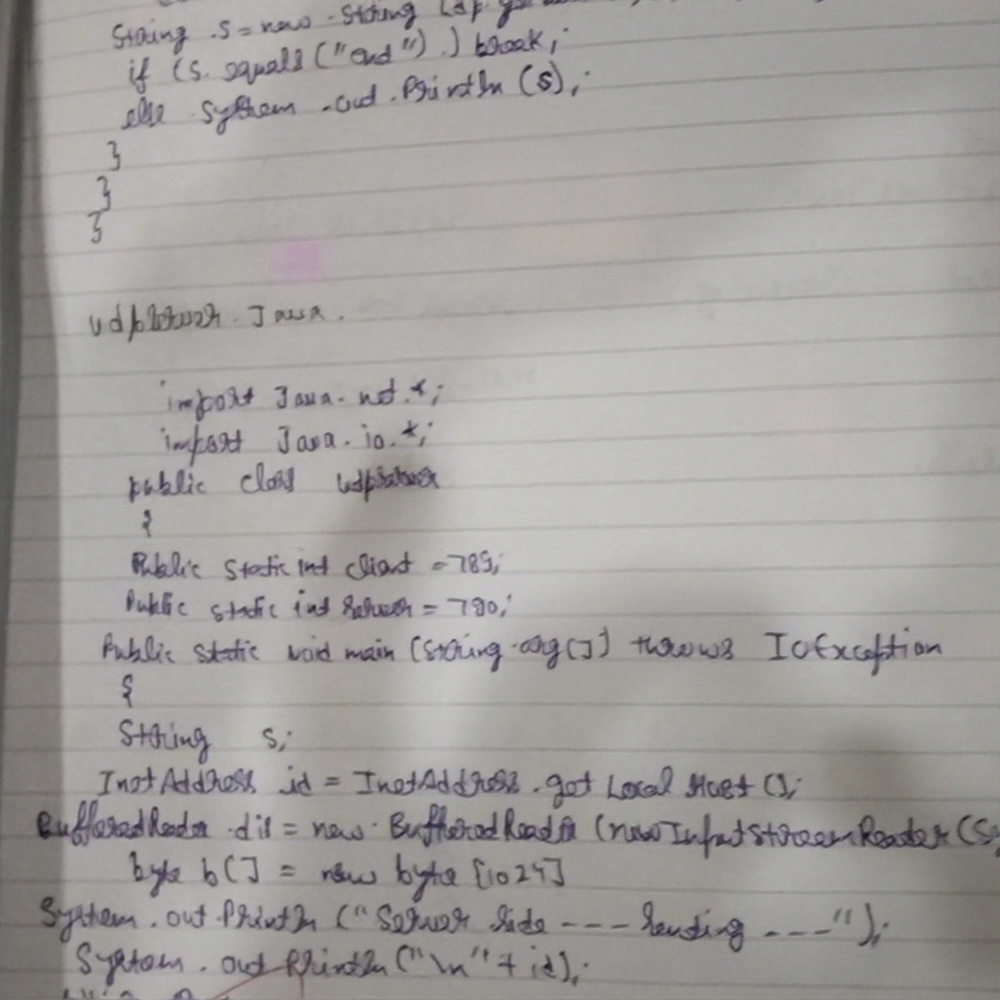 String s = new String (dp.ge
if (s. equals ("end") .) break;
else System .out .Println (s);
}
}
}
udpserver. Java.
import Java. net.*;
import Java. io.*;
public class udpserver
{
Public static int client = 789;
Public static int Server = 790;
Public static void main (String arg[]) throws IOException
{
String s;
InetAddress id = InetAddress .get Local Host ();
BufferedReader dis = new BufferedReader (new InputStreamReader (S
byte b[] = new byte [1024]
System .out .Println ("Server side --- sending ---");
System . out Println ("\n" + id);